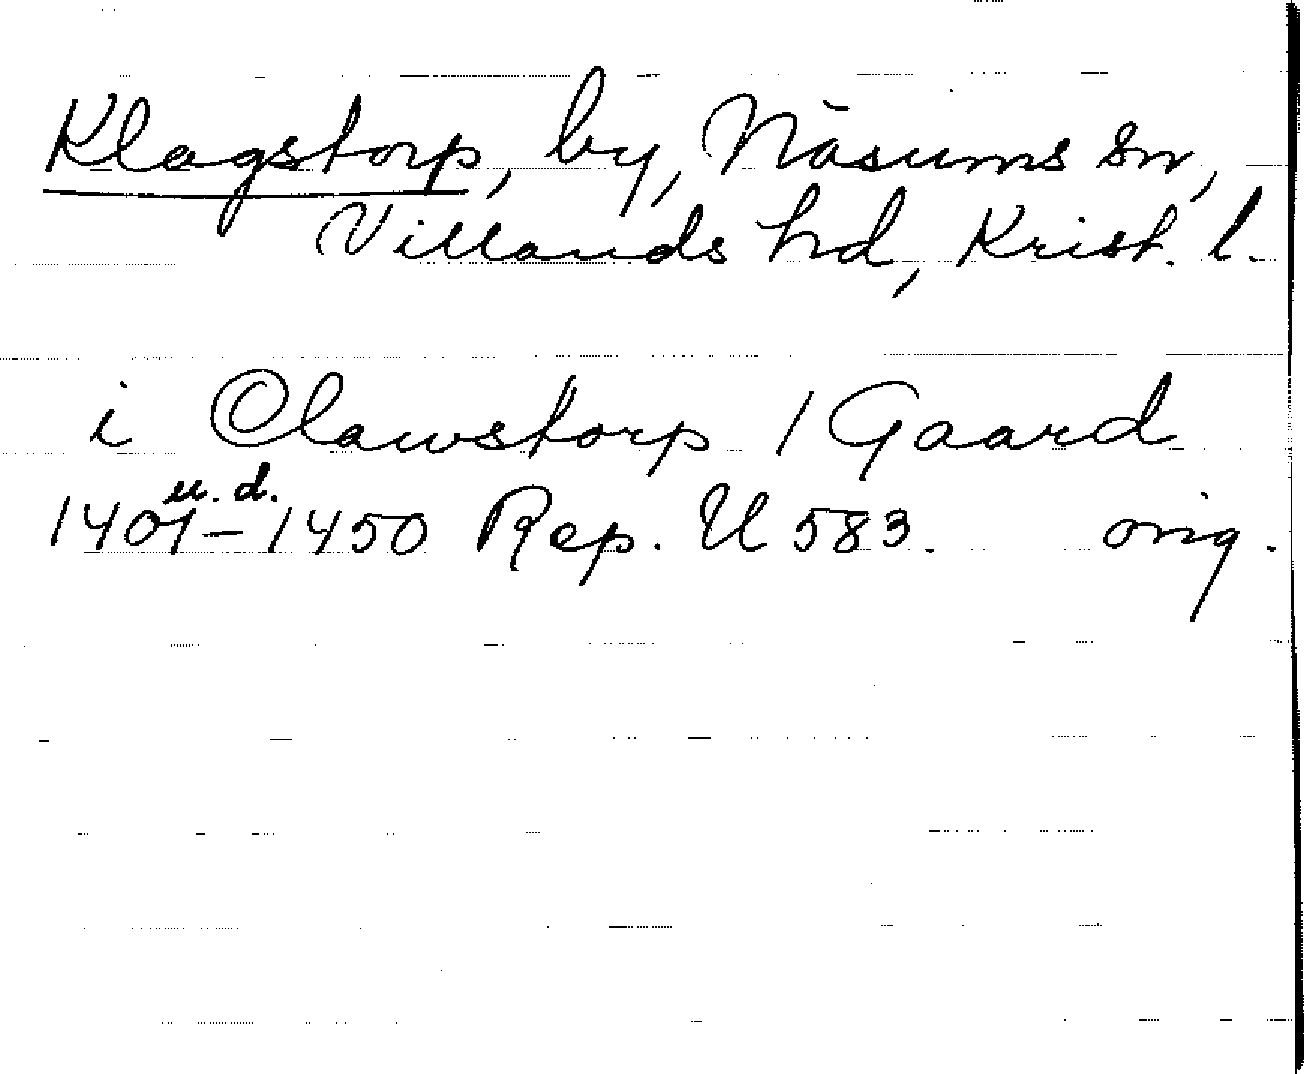 Klagstorp, by, Näsums sn,
Villands hd, Krist. l.
i Clawstorp 1 Gaard
u. d.
1401-1450 Rep. U 583. orig.